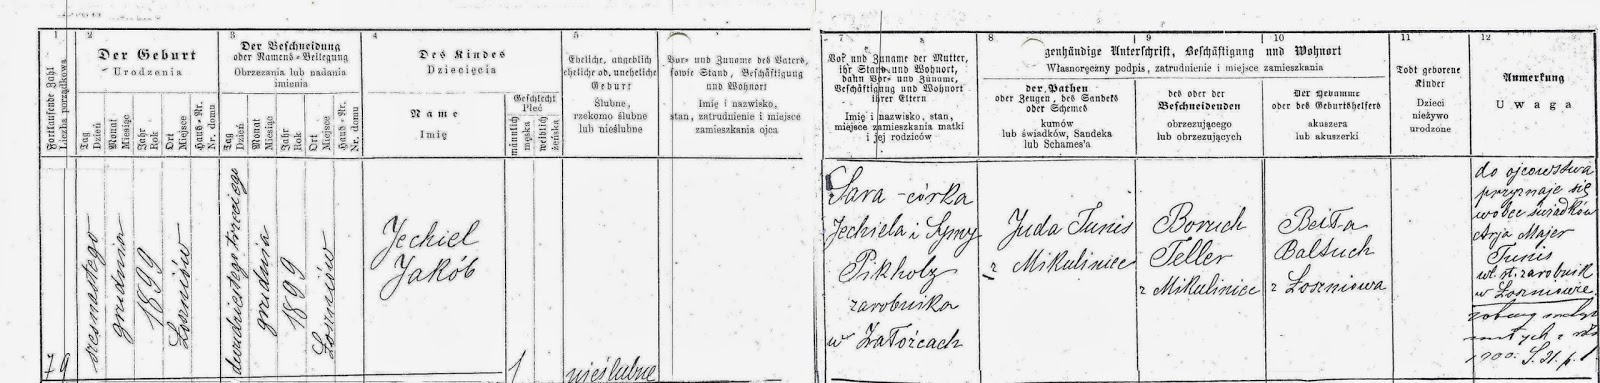 1
Fortlaufende Zahl
Liczba porządkowa
2
Der Geburt
Urodzenia
Tag
Dzień
Monat
Miesiąc
Jahr
Rok
Ort
Miejsce
Haus-Nr.
Nr. domu
3
Der Beschneidung
oder Namens-Beilegung
Obrzezania lub nadania
imienia
Tag
Dzień
Monat
Miesiąc
Jahr
Rok
Ort
Miejsce
Haus-Nr.
Nr. domu
4
Des Kindes
Dziecięcia
Name
Imię
Geschlecht
Płeć
männlich
męska
weiblich
żeńska
5
Eheliche, angeblich
eheliche od. uneheliche
Geburt
Ślubne,
rzekomo ślubne
lub nieślubne
Vor- und Zuname des Vaters,
sowie Stand, Beschäftigung
und Wohnort
Imię i nazwisko,
stan, zatrudnienie i miejsce
zamieszkania ojca
7
Vor und Zuname der Mutter,
ihr Stand und Wohnort,
dann Vor- und Zuname,
Beschäftigung und Wohnort
ihrer Eltern
Imię i nazwisko, stan,
miejsce zamieszkania matki
i jej rodziców
8
9
10
genhändige Unterschrift, Beschäftigung und Wohnort
Własnoręczny podpis, zatrudnienie i miejsce zamieszkania
der Pathen
oder Zeugen, des Sandeks
oder Schemes
kumów
lub świadków, Sandeka
lub Schames'a
des oder der
Beschneidenden
obrzezującego
lub obrzezujących
Der Hebamme
oder des Geburtshelfers
akuszera
lub akuszerki
11
Todt geborene
Kinder
Dzieci
nieżywo
urodzone
12
Anmerkung
Uwaga
79
szesnastego
grudnia
1899
Łoszniów
dwudziestego trzeciego
grudnia
1899
Łoszniów
Jechiel
Jakób
1
nieślubne
Sara - córka
Jechiela i Symy
Pikholz
zarobnika
w Załoźcach
Juda Tunis
z Mikuliniec
Boruch
Teller
z Mikuliniec
Beiła
Baltuch
z Łoszniowa
do ojcowstwa
przyznaje się
wobec świadków
Arja Majer
Tunis
zarobnik
w Łoszniowie
1900.